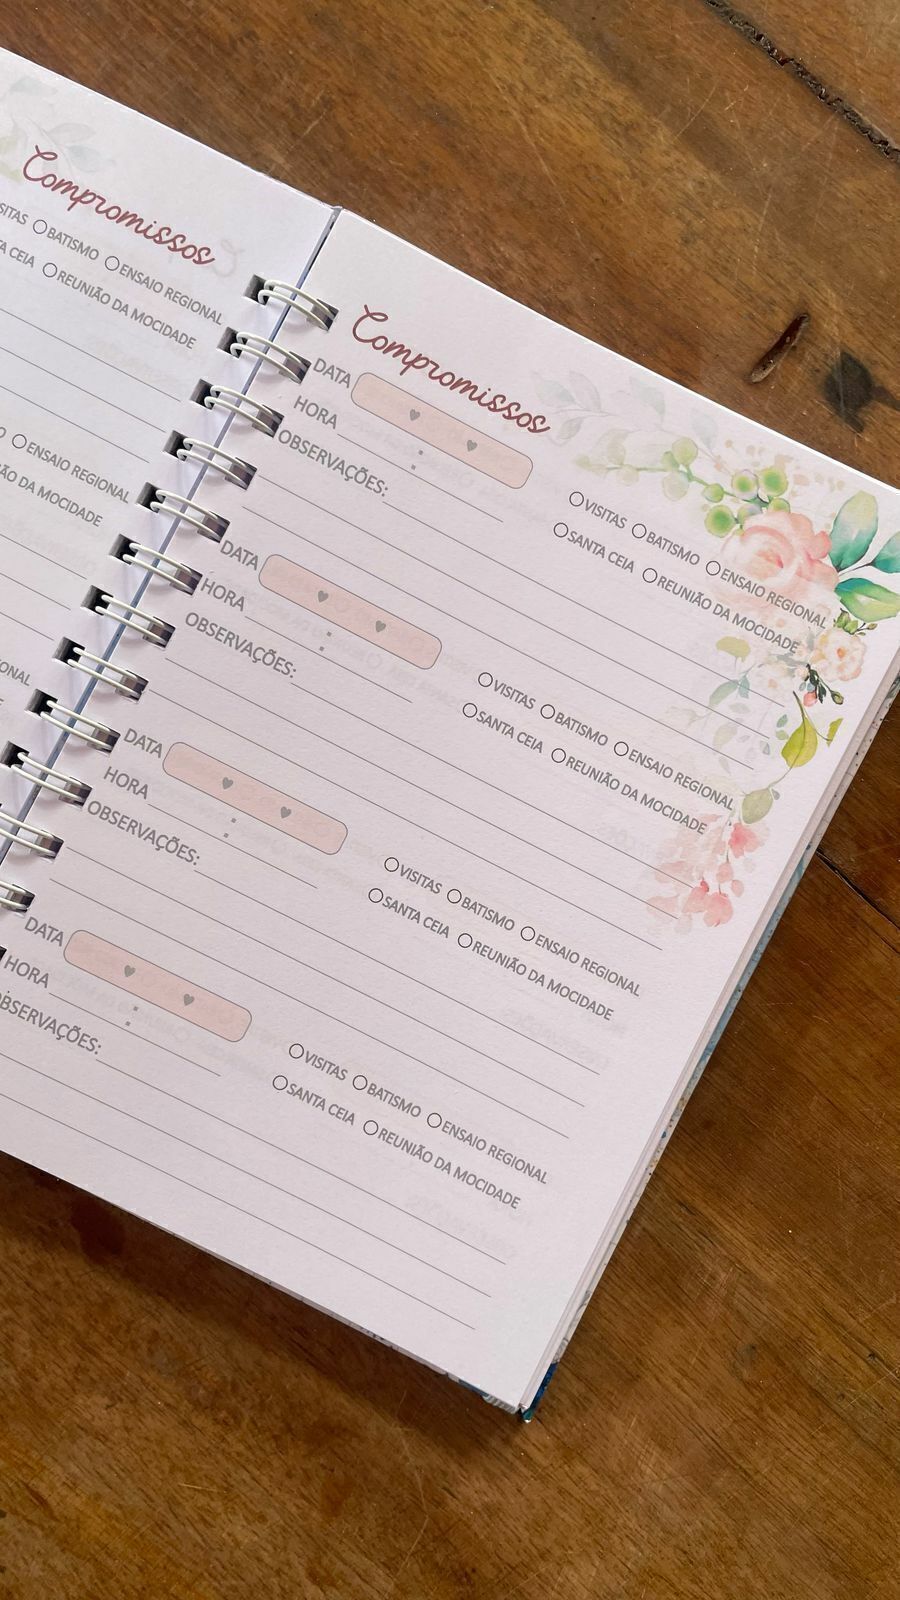 Compromissos
BATISMO ENSAIO REGIONAL
CEIA REUNIÃO DA MOCIDADE
ENSAIO REGIONAL
DA MOCIDADE
Compromissos
DATA
HORA :
OBSERVAÇÕES:
VISITAS BATISMO ENSAIO REGIONAL
SANTA CEIA REUNIÃO DA MOCIDADE
DATA
HORA :
OBSERVAÇÕES:
VISITAS BATISMO ENSAIO REGIONAL
SANTA CEIA REUNIÃO DA MOCIDADE
DATA
HORA :
OBSERVAÇÕES:
VISITAS BATISMO ENSAIO REGIONAL
SANTA CEIA REUNIÃO DA MOCIDADE
DATA
HORA :
OBSERVAÇÕES:
VISITAS BATISMO ENSAIO REGIONAL
SANTA CEIA REUNIÃO DA MOCIDADE